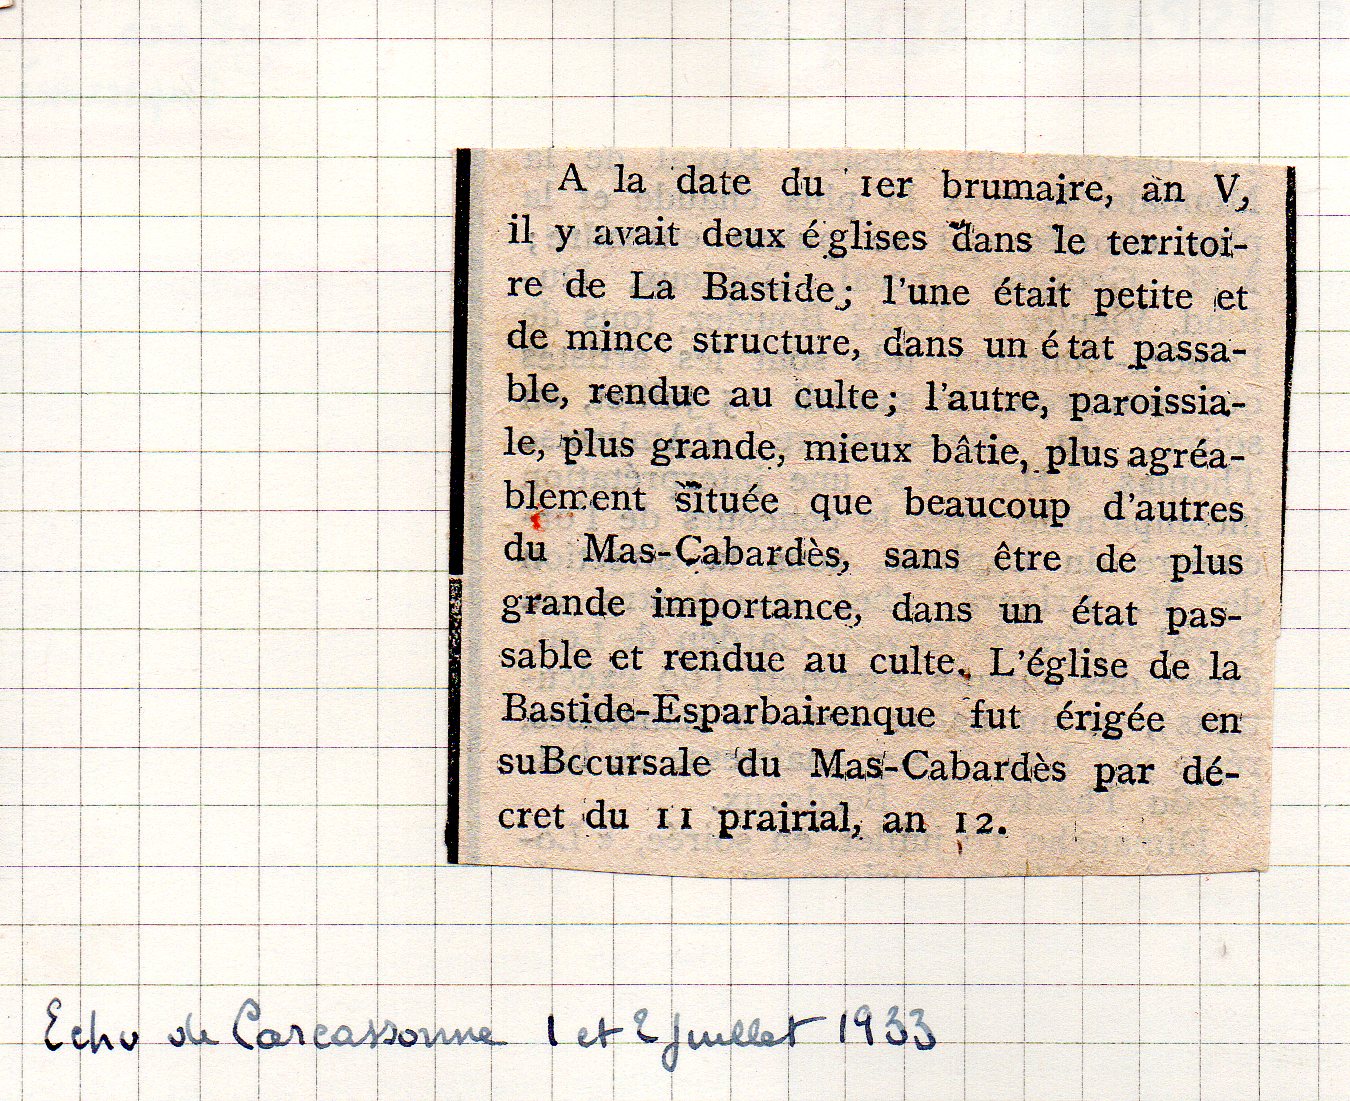 A la date du 1er brumaire, an V,
il y avait deux églises dans le territoi-
re de La Bastide; l'une était petite et
de mince structure, dans un état passa-
ble, rendue au culte; l'autre, paroissia-
le, plus grande, mieux bâtie, plus agréa-
blement située que beaucoup d'autres
du Mas-Cabardès, sans être de plus
grande importance, dans un état pas-
sable et rendue au culte. L'église de la
Bastide-Esparbairenque fut érigée en
suBccursale du Mas-Cabardès par dé-
cret du 11 prairial, an 12.
Echo de Carcassonne 1 et 2 juillet 1933